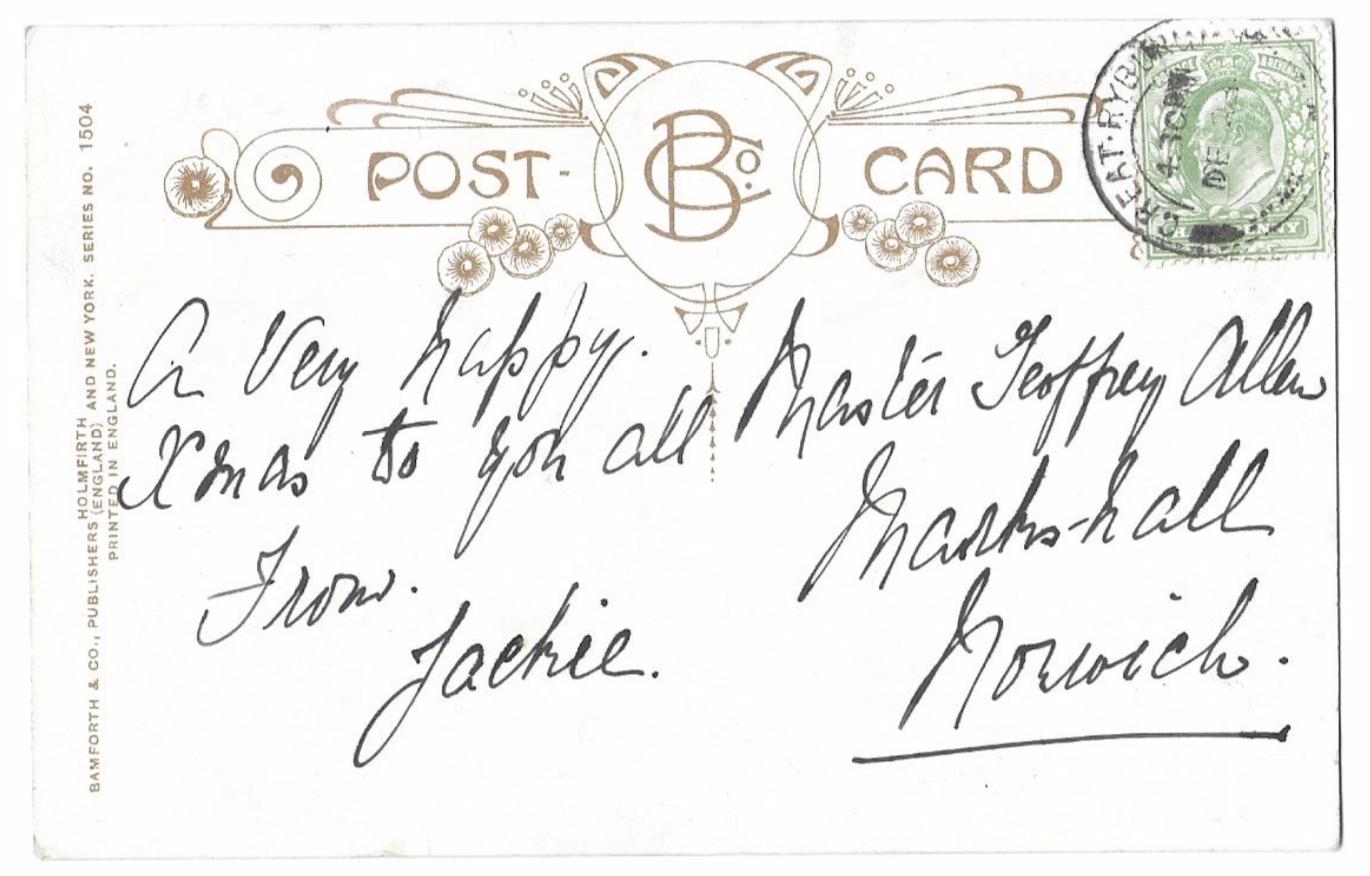 BAMFORTH & CO., PUBLISHERS HOLMFIRTH (ENGLAND) AND NEW YORK. SERIES NO. 1504
PRINTED IN ENGLAND.
POST-CARD
B Co.
GREAT·RYBU
4.30PM
DE
A Very happy.
Xmas to you all
From.
Jackie.
Master Geoffrey Allen
Marks-hall
Norwich.